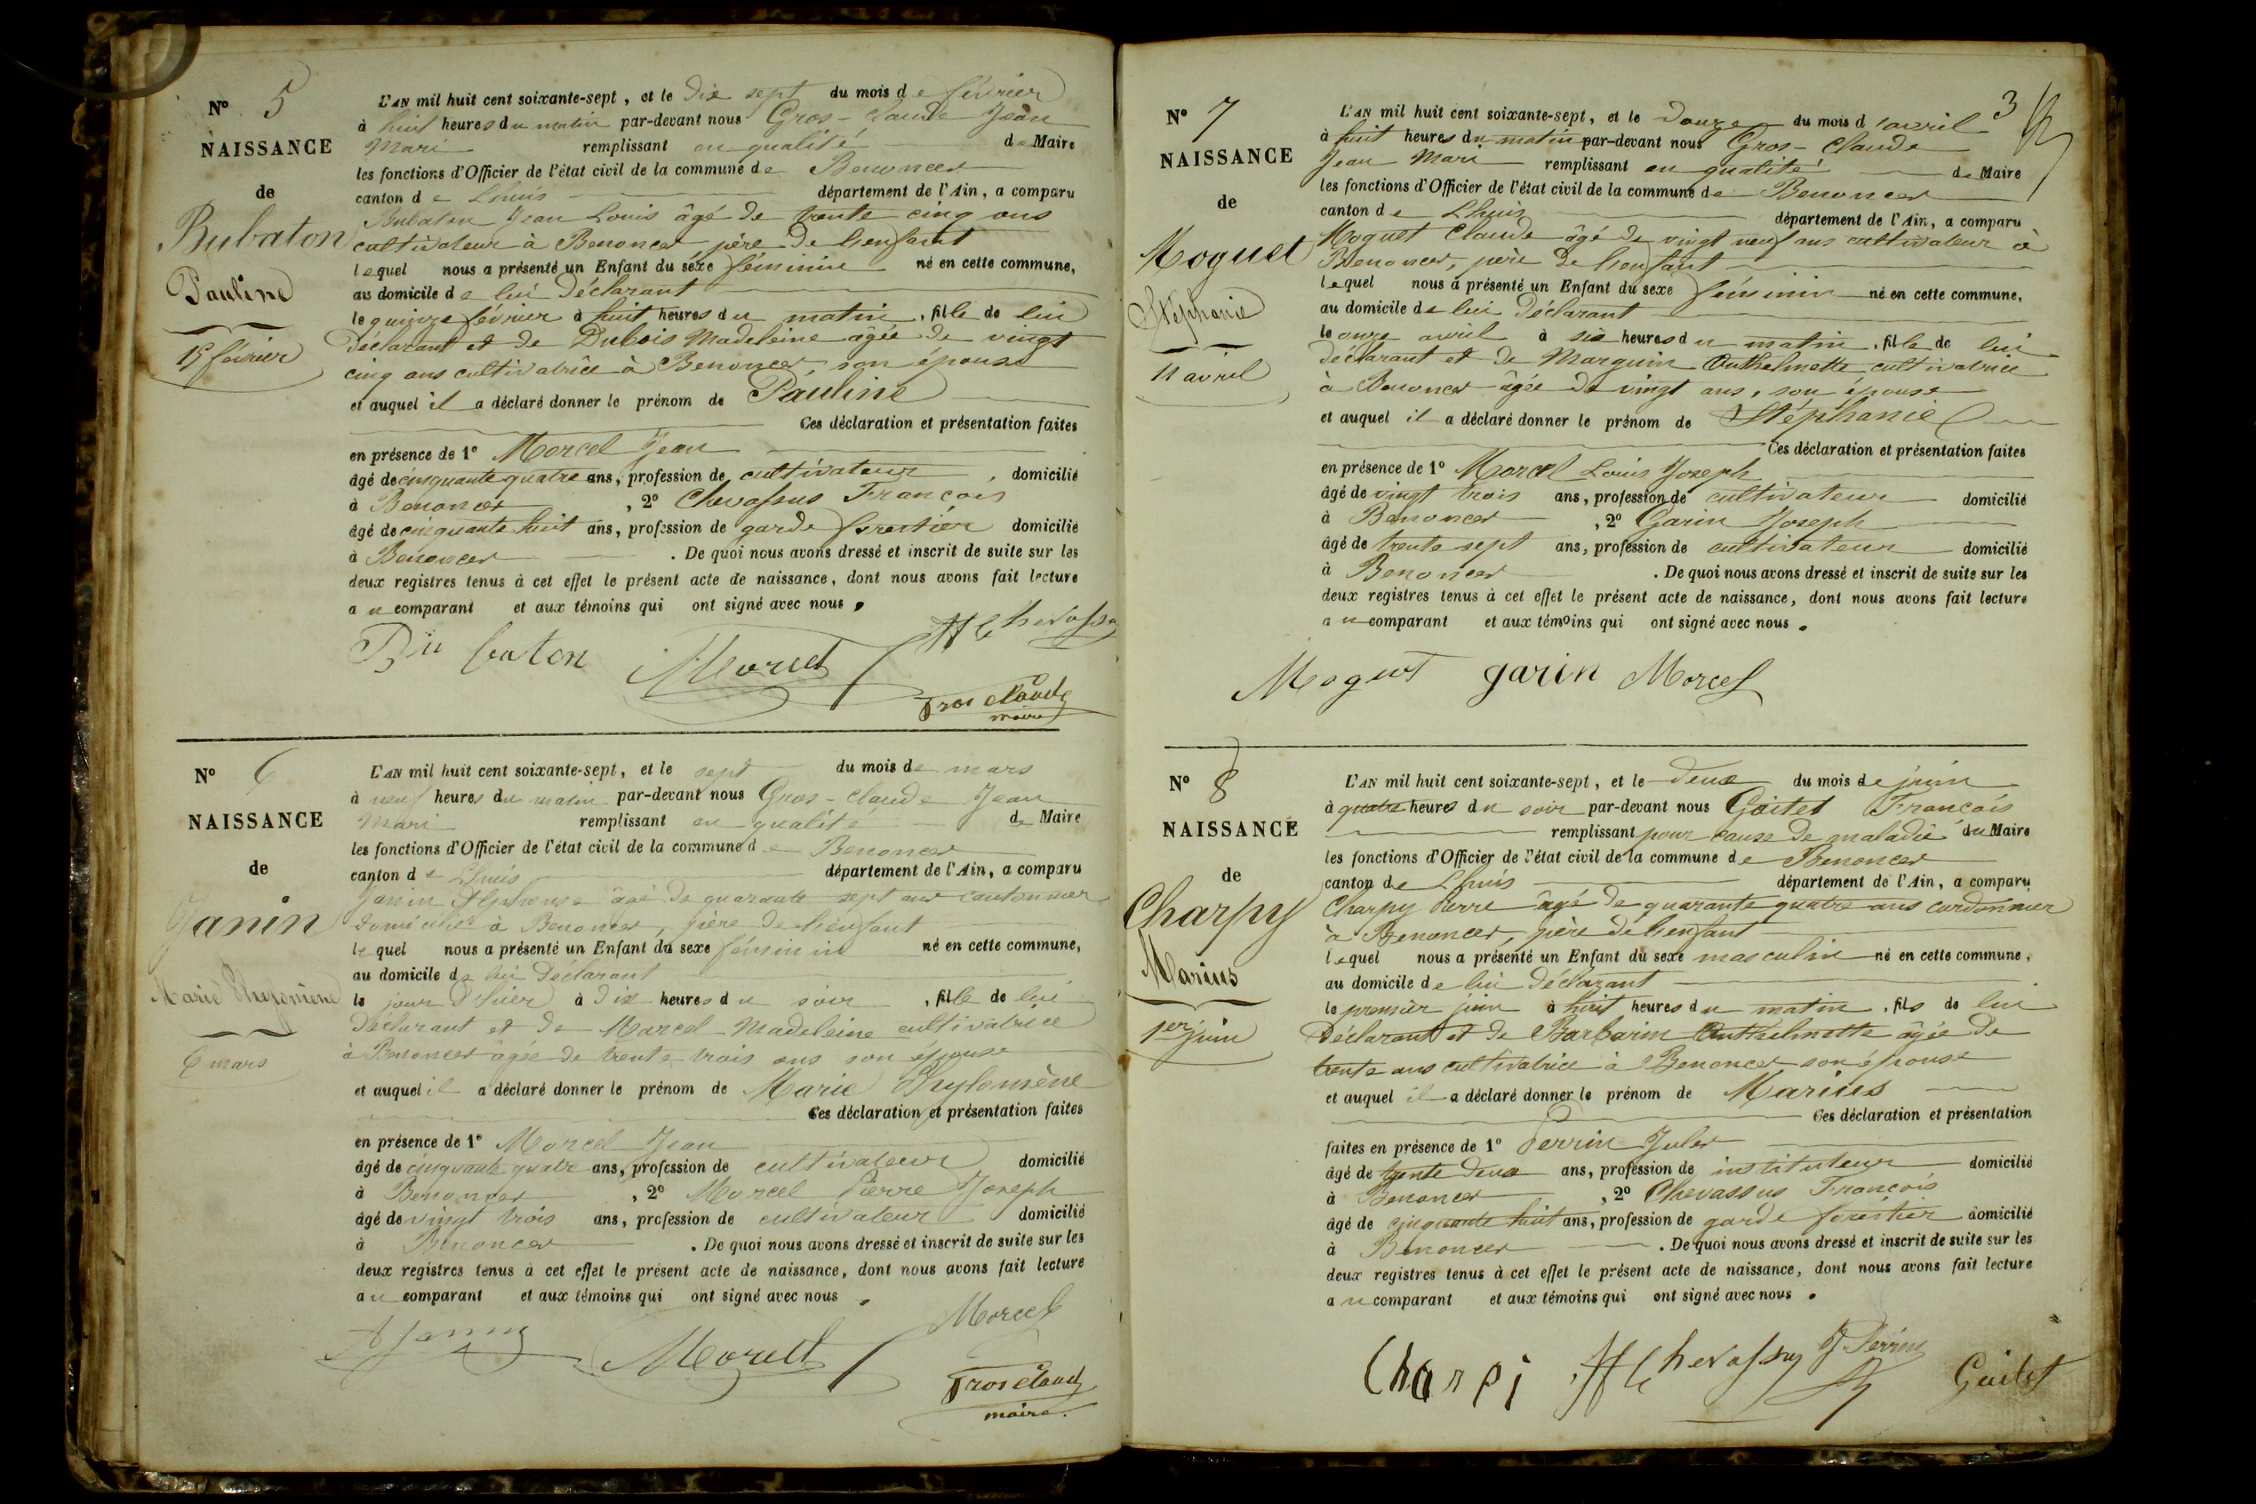 N° 5
NAISSANCE
de
Bubaton
Pauline
15 février
L'AN mil huit cent soixante-sept, et le dix sept du mois de février
à huit heures du matin par-devant nous Gros-Claude Jean
Mari remplissant en qualité de Maire
les fonctions d'Officier de l'état civil de la commune de Benonces
canton de Lhuis département de l'Ain, a comparu
Bubaton Jean Louis âgé de trente cinq ans
cultivateur à Benonces père de l'enfant
lequel nous a présenté un Enfant du sexe féminin né en cette commune,
au domicile de lui déclarant
le quinze février à huit heures du matin, fille de lui
déclarant et de Dubois Madeleine âgée de vingt
cinq ans cultivatrice à Benonces, son épouse
et auquel il a déclaré donner le prénom de Pauline
Ces déclaration et présentation faites
en présence de 1° Marcel Jean
âgé de cinquante quatre ans, profession de cultivateur domicilié
à Benonces, 2° Chevassus François
âgé de cinquante huit ans, profession de garde forestier domicilié
à Benonces. De quoi nous avons dressé et inscrit de suite sur les
deux registres tenus à cet effet le présent acte de naissance, dont nous avons fait lecture
au comparant et aux témoins qui ont signé avec nous.
Bu baton Marcel Chevassus
Gros Claude
maire
N° 6
NAISSANCE
de
Janin
Marie Phylomène
6 mars
L'AN mil huit cent soixante-sept, et le sept du mois de mars
à neuf heures du matin par-devant nous Gros-Claude Jean
Mari remplissant en qualité de Maire
les fonctions d'Officier de l'état civil de la commune de Benonces
canton de Lhuis département de l'Ain, a comparu
Janin Alphonse âgé de quarante sept ans cantonnier
domicilié à Benonces, père de l'enfant
lequel nous a présenté un Enfant du sexe féminin né en cette commune,
au domicile de lui déclarant
le jour d'hier à dix heures du soir, fille de lui
déclarant et de Marcel Madeleine cultivatrice
à Benonces âgée de trente trois ans son épouse
et auquel il a déclaré donner le prénom de Marie Phylomène
Ces déclaration et présentation faites
en présence de 1° Marcel Jean
âgé de cinquante quatre ans, profession de cultivateur domicilié
à Benonces, 2° Marcel Pierre Joseph
âgé de vingt trois ans, profession de cultivateur domicilié
à Benonces. De quoi nous avons dressé et inscrit de suite sur les
deux registres tenus à cet effet le présent acte de naissance, dont nous avons fait lecture
au comparant et aux témoins qui ont signé avec nous.
A Janin Marcel Marcel
Gros Claude
maire.
3
N° 7
NAISSANCE
de
Moguet
Stéphanie
11 avril
L'AN mil huit cent soixante-sept, et le douze du mois d'avril
à huit heures du matin par-devant nous Gros-Claude
Jean Mari remplissant en qualité de Maire
les fonctions d'Officier de l'état civil de la commune de Benonces
canton de Lhuis département de l'Ain, a comparu
Moguet Claude âgé de vingt neuf ans cultivateur à
Benonces, père de l'enfant
lequel nous a présenté un Enfant du sexe féminin né en cette commune,
au domicile de lui déclarant
le onze avril à six heures du matin, fille de lui
déclarant et de Marguin Anthelmette cultivatrice
à Benonces âgée de vingt ans, son épouse
et auquel il a déclaré donner le prénom de Stéphanie
Ces déclaration et présentation faites
en présence de 1° Marcel Louis Joseph
âgé de vingt trois ans, profession de cultivateur domicilié
à Benonces, 2° Garin Joseph
âgé de trente sept ans, profession de cultivateur domicilié
à Benonces. De quoi nous avons dressé et inscrit de suite sur les
deux registres tenus à cet effet le présent acte de naissance, dont nous avons fait lecture
au comparant et aux témoins qui ont signé avec nous.
Moguet garin Marcel
N° 8
NAISSANCE
de
Charpy
Marius
1er juin
L'AN mil huit cent soixante-sept, et le deux du mois de juin
à quatre heures du soir par-devant nous Goitet François
remplissant pour cause de maladie du Maire
les fonctions d'Officier de l'état civil de la commune de Benonces
canton de Lhuis département de l'Ain, a comparu
Charpy Pierre âgé de quarante quatre ans cordonnier
à Benonces, père de l'enfant
lequel nous a présenté un Enfant du sexe masculin né en cette commune,
au domicile de lui déclarant
le premier juin à huit heures du matin, fils de lui
Déclarant et de Barbarin Anthelmette âgée de
trente ans cultivatrice à Benonces son épouse
et auquel il a déclaré donner le prénom de Marius
Ces déclaration et présentation
faites en présence de 1° Perrin Jules
âgé de trente deux ans, profession de instituteur domicilié
à Benonces, 2° Chevassus François
âgé de cinquante huit ans, profession de garde forestier domicilié
à Benonces. De quoi nous avons dressé et inscrit de suite sur les
deux registres tenus à cet effet le présent acte de naissance, dont nous avons fait lecture
au comparant et aux témoins qui ont signé avec nous.
Charpi Chevassus J Perrin Goitet